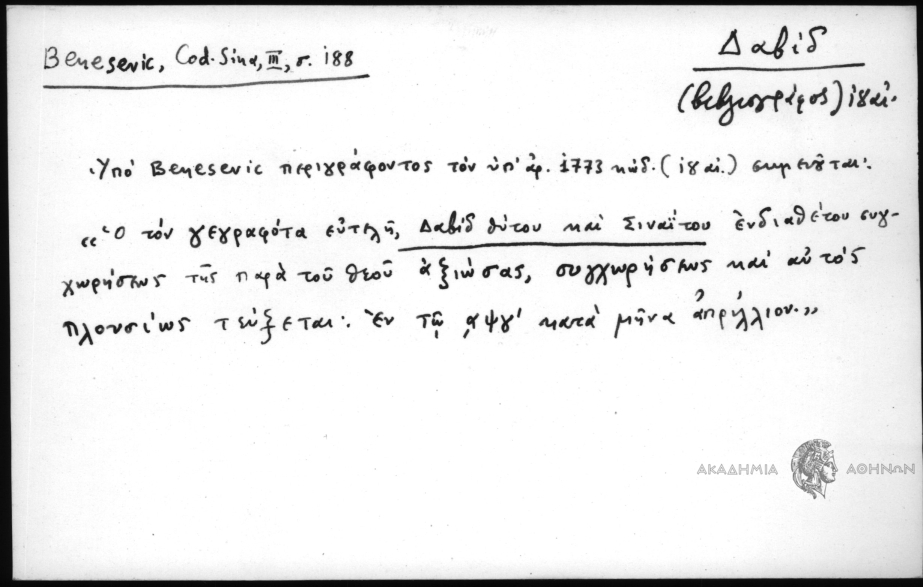 Benesevic, Cod. Sina, III, σ. 188
Δαβίδ
(βιβλιογράφος) ιη΄ αἰ.
Ὑπό Benesevic περιγράφοντος τόν ὑπ' ἀρ. 1773 κώδ. (ιη΄ αἰ.) σημειοῦται:
«Ὁ τόν γεγραφότα εὐτελῆ, Δαβίδ θύτου καί Σιναΐτου ἐνδιαθέτου συγ-
χωρήσεως τῆς παρά τοῦ Θεοῦ ἀξιώσας, συγχωρήσεως καί αὐτός
πλουσίως τεύξεται: Ἐν τῷ ͵αψγ' κατά μῆνα ἀπρίλλιον.»
ΑΚΑΔΗΜΙΑ ΑΘΗΝΩΝ